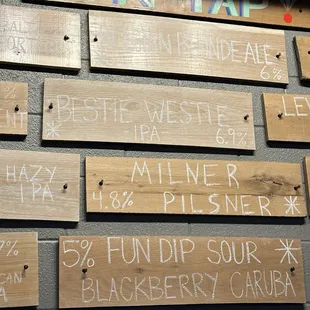 TAP
BLONDE ALE
6%
%
BESTIE WESTIE
- IPA -
6.9%
HAZY
IPA
MILNER
4.8% PILSNER
%
5% FUN DIP SOUR
BLACKBERRY CARUBA